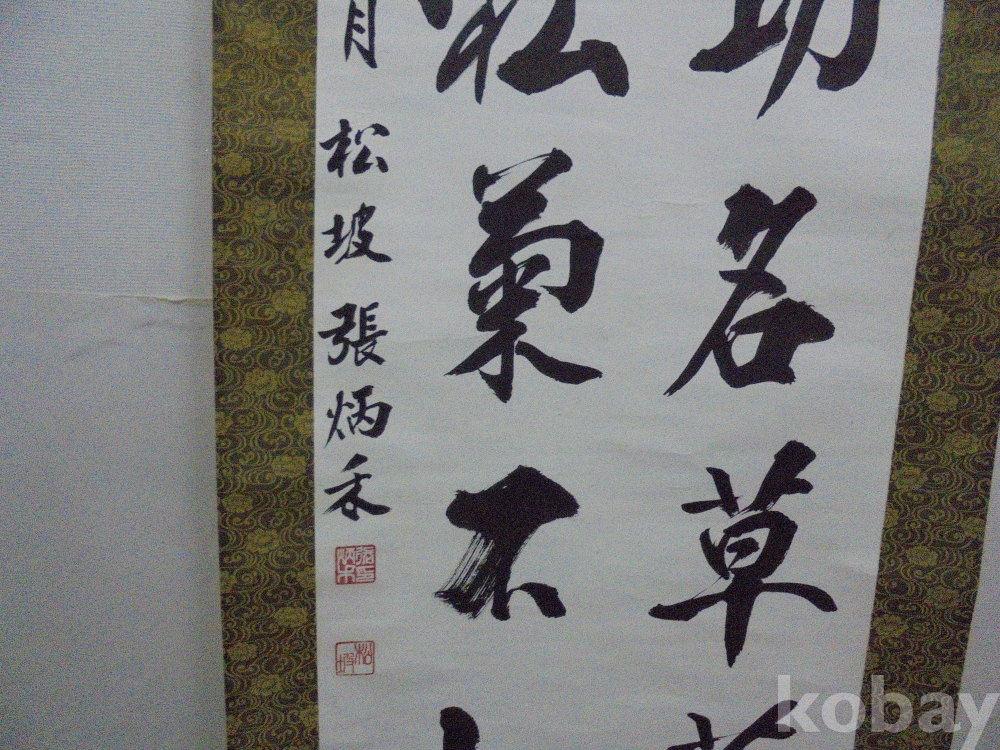 功名草
松菊不
月 松坡 張炳禾
松坡
kobay